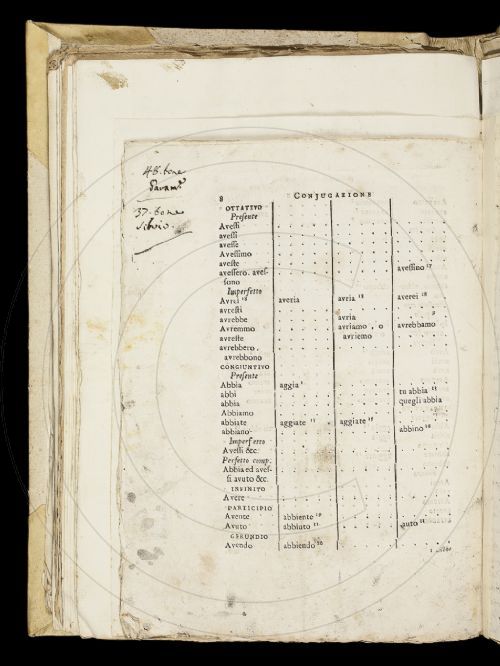 48. bone
37. bone
8 CONJUGAZIONE
OTTATIVO
Presente
Avessi
avessi
avesse
Avessimo
aveste
avessero. aves-
sono avessino 17
Imperfetto
Avrei 18 averia avria 18 averei 18
avresti
avrebbe avria
Avremmo avriamo, o avrebbamo
avreste avriemo
avrebbero,
avrebbono
CONGIUNTIVO
Presente
Abbia aggia
abbi tu abbia 25
abbia quegli abbia
Abbiamo
abbiate aggiate aggiate
abbiano abbino
Imperfetto
Avessi &c.
Perfetto comp.
Abbia ed aves-
si avuto &c.
INFINITO
Avere
PARTICIPIO
Avente abbiente 19
Avuto abbiuto auto
GERUNDIO
Avendo abbiendo 20